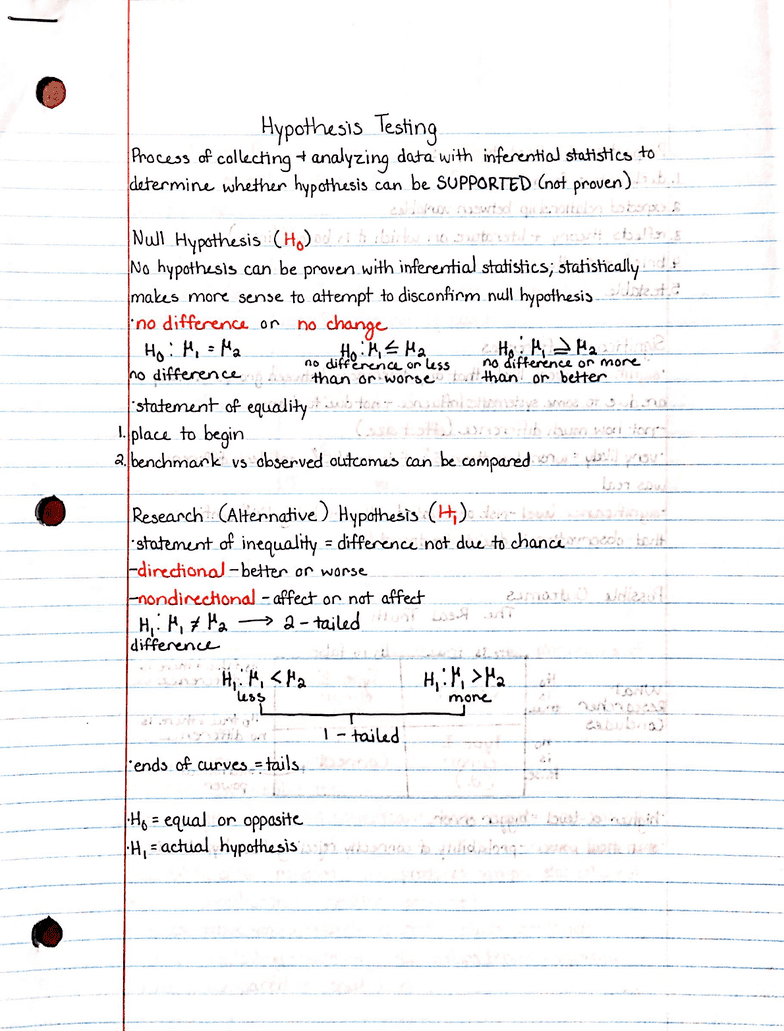 Hypothesis Testing
Process of collecting + analyzing data with inferential statistics to
determine whether hypothesis can be SUPPORTED (not proven)
Null Hypothesis (H₀)
No hypothesis can be proven with inferential statistics; statistically
makes more sense to attempt to disconfirm null hypothesis
·no difference or no change
H₀: μ₁ = μ₂ H₀: μ₁ ≤ μ₂ H₀: μ₁ ≥ μ₂
no difference no difference or less than or worse no difference or more than or better
·statement of equality
1. place to begin
2. benchmark vs observed outcomes can be compared
Research (Alternative) Hypothesis (H₁)
·statement of inequality = difference not due to chance
-directional - better or worse
-nondirectional - affect or not affect
H₁: μ₁ ≠ μ₂ → 2-tailed
difference
H₁: μ₁ < μ₂ H₁: μ₁ > μ₂
less more
1-tailed
·ends of curves = tails
·H₀ = equal or opposite
·H₁ = actual hypothesis